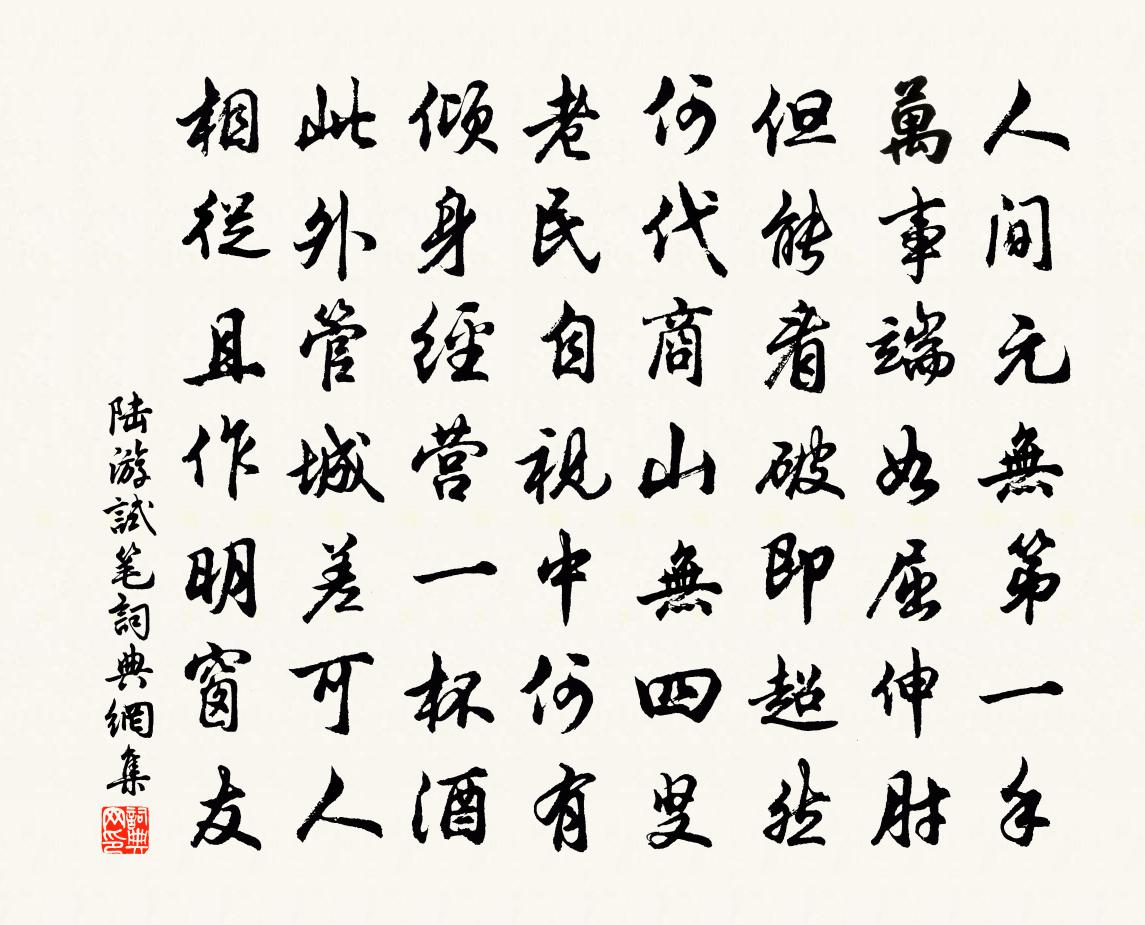 人间元無第一手
萬事端如屈伸肘
但能看破即超然
何代商山無四叟
老民自視中何有
傾身經营一杯酒
此外管城差可人
相從且作明窗友
陆游試笔詞典網集
詞典網印